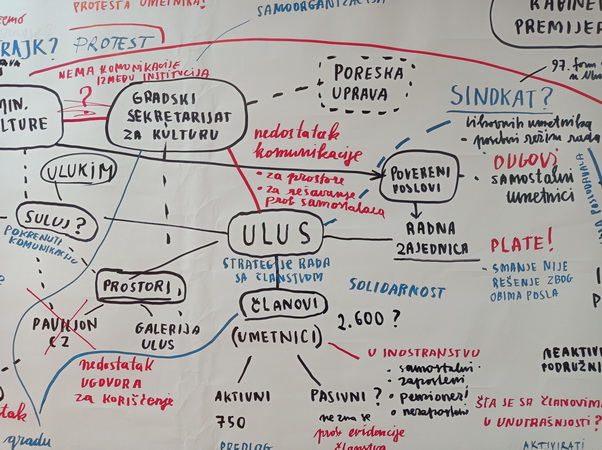 PROTESTA UMETNIKA!
SAMOORGANIZACIJA
KABINET
PREMIJER
PROTEST
NEMA KOMUNIKACIJE
IZMEĐU INSTITUCIJA
?
GRADSKI
SEKRETARIJAT
ZA KULTURU
PORESKA
UPRAVA
SINDKAT?
97. form
nedostatak
komunikacije
• za prostore
• za rešavanje
prob samostalaca
POVERENI
POSLOVI
DUGOVI
SAMOSTALNI
UMETNICI
ULUKIM
SULUJ?
POKRENUTI
KOMUNIKACIJU
ULUS
RADNA
ZAJEDNICA
PLATE!
- SMANJE NIJE
REŠENJE ZBOG
OBIMA POSLA
STRATEGIJE RADA
SA ČLANSTVOM
PROSTORI
ČLANOVI
(UMETNICI)
SOLIDARNOST
2.600?
PAVILJON
CZ
GALERIJA
ULUS
nedostatak
UGOVORA
za KORIŠĆENJE
U INOSTRANSTVU
• samostalni
• zaposleni
• penzioneri
• nezaposleni
AKTIVNI
750
PASIVNI ?
ne zna se
prob evidencije
članstva
ŠTA SE SA ČLANOVIMA
U UNUTRAŠNJOSTI?
gradu
PREDLOG
AKTIVIRATI